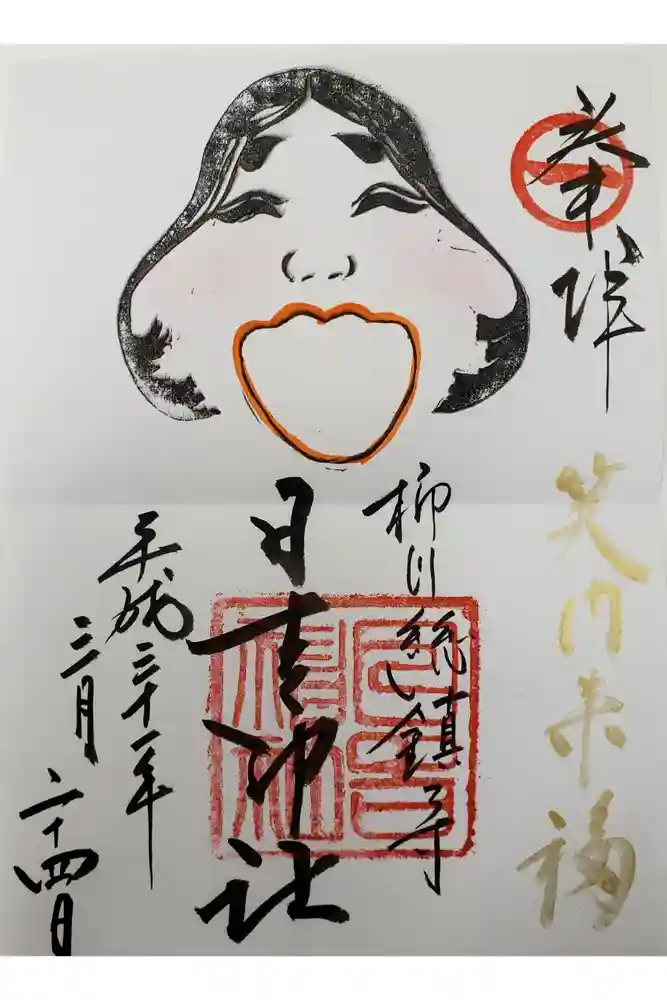 奉拝
笑門来福
柳川総鎮守
日吉神社
平成三十一年
三月
二十四日